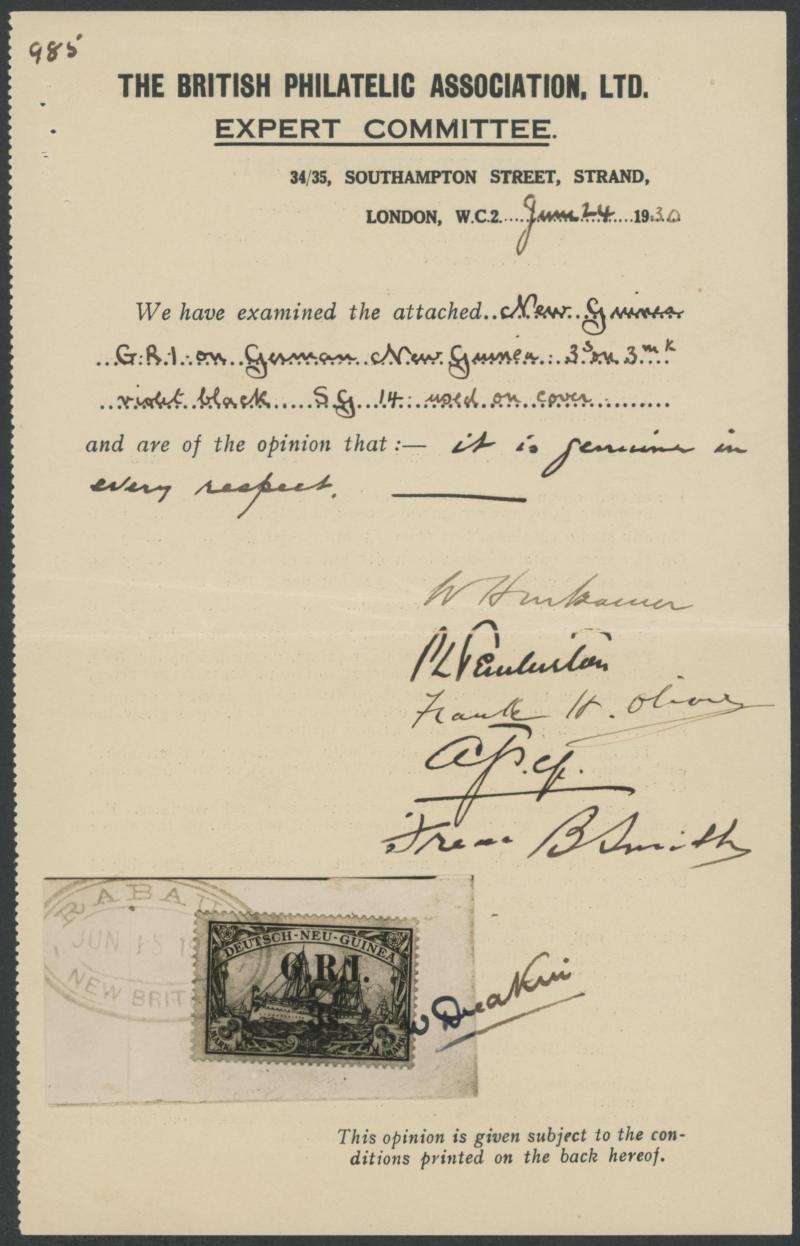 985
THE BRITISH PHILATELIC ASSOCIATION, LTD.
EXPERT COMMITTEE.
34/35, SOUTHAMPTON STREET, STRAND,
LONDON, W.C.2. June 24 1930
We have examined the attached New Guinea
G.R.I. on German New Guinea: 3s on 3mk
violet black SG 14: used on cover
and are of the opinion that :— it is genuine in
every respect.
PL Pemberton
Frank H. Oliver
B Smith
RABAU
JUN 15 19
NEW BRIT
DEUTSCH-NEU-GUINEA
G.R.I.
3s.
3 MARK 3 MARK
This opinion is given subject to the con-
ditions printed on the back hereof.